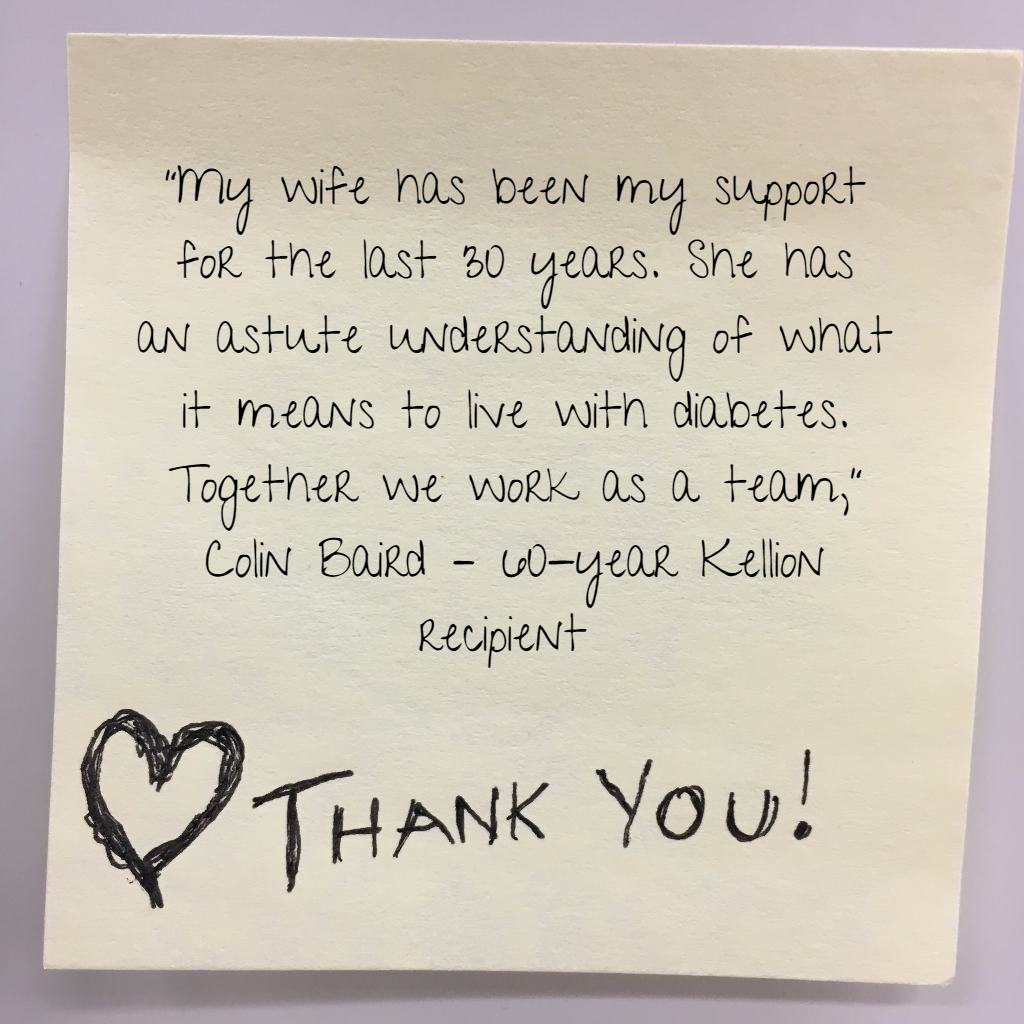 "My wife has been my support
for the last 30 years. She has
an astute understanding of what
it means to live with diabetes.
Together we work as a team,"
Colin Baird - 60-year Kellion
recipient
THANK YOU!